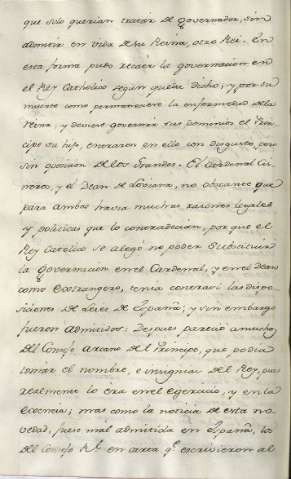 que solo querian tratar de Governador, sin
admitir en vida de la Reina, otro Rei. En
esta forma pudo recaer la governacion en
el Rey Catholico segun queda dicho; y por su
muerte como permaneciese la enfermedad de la
Reina, y deviese governar sus dominios el Prin-
cipe su hijo, entraron en ello con disgusto, pero
sin oposicion de los Grandes. El Cardenal Cis-
neros, y el Dean de Lobaina, no obstante que
para ambos havia muchas razones legales
y politicas que lo contradecian, porque el
Rey Catolico se alegó no poder substituir
la governacion en el Cardenal, y en el Dean
como Extrangero, tenia contra si las dispo-
siciones de Leies de España; y sin embargo
fueron admitidos. Despues pareció a mucho
del Consejo Arcano del Principe, que podia
tomar el nombre, e insignias del Rey, pues
realmente lo era en el egercicio, y en la
Esencia; mas como la noticia de esta no-
vedad, fuese mal admitida en España, los
del Consejo Rl. en carta qe. escrivieron al